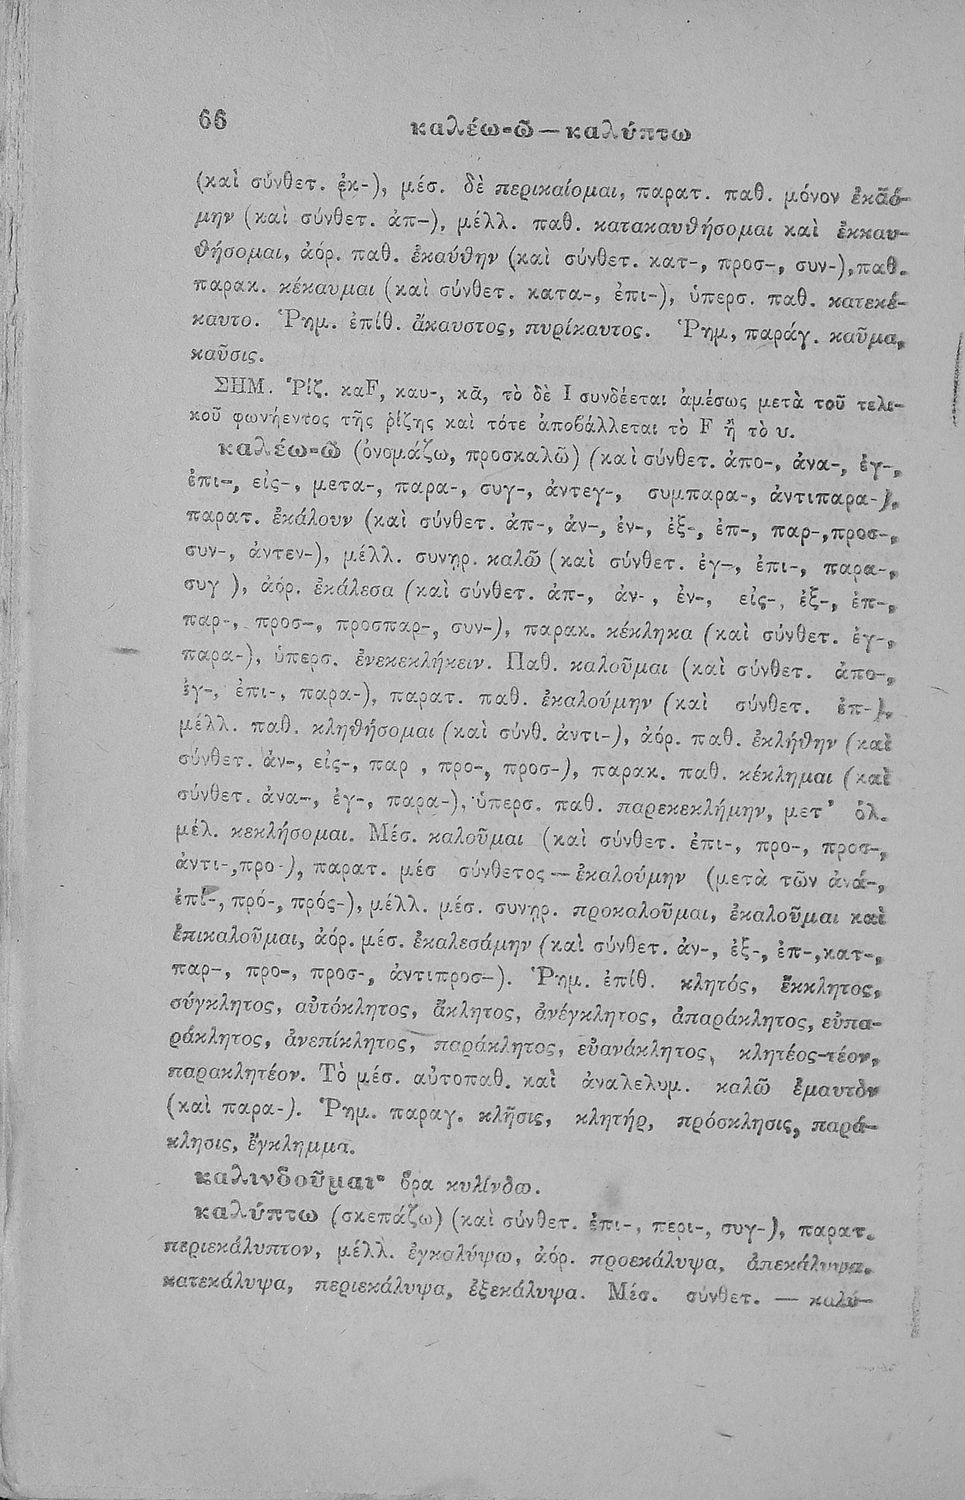 66
καλέω-ῶ — καλύπτω
(καὶ σύνθετ. ἐκ-), μέσ. δὲ περικαίομαι, παρατ. παθ. μόνον ἐκαό-
μην (καὶ σύνθετ. ἀπ-), μέλλ. παθ. κατακαυθήσομαι καὶ ἐκκαυ-
θήσομαι, ἀόρ. παθ. ἐκαύθην (καὶ σύνθετ. κατ-, προσ-, συν-), παθ.
παρακ. κέκαυμαι (καὶ σύνθετ. κατα-, ἐπι-), ὑπερσ. παθ. κατεκέ-
καυτο. Ῥημ. ἐπίθ. ἄκαυστος, πυρίκαυτος. Ῥημ, παράγ. καῦμα,
καῦσις.
ΣΗΜ. Ῥίζ. καF, καυ-, κᾱ, τὸ δὲ Ι συνδέεται ἀμέσως μετὰ τοῦ τελι-
κοῦ φωνήεντος τῆς ῥίζης καὶ τότε ἀποβάλλεται τὸ F ἢ τὸ υ.
καλέω-ῶ (ὀνομάζω, προσκαλῶ) (καὶ σύνθετ. ἀπο-, ἀνα-, ἐγ-,
ἐπι-, εἰς-, μετα-, παρα-, συγ-, ἀντεγ-, συμπαρα-, ἀντιπαρα-),
παρατ. ἐκάλουν (καὶ σύνθετ. ἀπ-, ἀν-, ἐν-, ἐξ-, ἐπ-, παρ-, προσ-,
συν-, ἀντεν-), μέλλ. συνῃρ. καλῶ (καὶ σύνθετ. ἐγ-, ἐπι-, παρα-,
συγ ), ἀόρ. ἐκάλεσα (καὶ σύνθετ. ἀπ-, ἀν-, ἐν-, εἰς-, ἐξ-, ἐπ-,
παρ-, προσ-, προσπαρ-, συν-), παρακ. κέκληκα (καὶ σύνθετ. ἐγ-,
παρα-), ὑπερσ. ἐνεκεκλήκειν. Παθ. καλοῦμαι (καὶ σύνθετ. ἀπο-,
ἐγ-, ἐπι-, παρα-), παρατ. παθ. ἐκαλούμην (καὶ σύνθετ. ἐπ-),
μέλλ. παθ. κληθήσομαι (καὶ σύνθ. ἀντι-), ἀόρ. παθ. ἐκλήθην (καὶ
σύνθετ. ἀν-, εἰς-, παρ , προ-, προσ-), παρακ. παθ. κέκλημαι (καὶ
σύνθετ. ἀνα-, ἐγ-, παρα-), ὑπερσ. παθ. παρεκεκλήμην, μετ' ὀλ.
μέλ. κεκλήσομαι. Μέσ. καλοῦμαι (καὶ σύνθετ. ἐπι-, προ-, προσ-,
ἀντι-, προ-), παρατ. μέσ σύνθετος — ἐκαλούμην (μετὰ τῶν ἀνά-,
ἐπί-, πρό-, πρός-), μέλλ. μέσ. συνῃρ. προκαλοῦμαι, ἐκαλοῦμαι καὶ
ἐπικαλοῦμαι, ἀόρ. μέσ. ἐκαλεσάμην (καὶ σύνθετ. ἀν-, ἐξ-, ἐπ-, κατ-,
παρ-, προ-, προσ-, ἀντιπροσ-). Ῥημ. ἐπίθ. κλητός, ἔκκλητος,
σύγκλητος, αὐτόκλητος, ἄκλητος, ἀνέγκλητος, ἀπαράκλητος, εὐπα-
ράκλητος, ἀνεπίκλητος, παράκλητος, εὐανάκλητος, κλητέος-τέον,
παρακλητέον. Τὸ μέσ. αὐτοπαθ. καὶ ἀναλελυμ. καλῶ ἐμαυτὸν
(καὶ παρα-). Ῥημ. παραγ. κλῆσις, κλητήρ, πρόσκλησις, παρά-
κλησις, ἔγκλημμα.
καλινδοῦμαι· ὅρα κυλίνδω.
καλύπτω (σκεπάζω) (καὶ σύνθετ. ἐπι-, περι-, συγ-), παρατ.
περιεκάλυπτον, μέλλ. ἐγκαλύψω, ἀόρ. προεκάλυψα, ἀπεκάλυψα,
κατεκάλυψα, περιεκάλυψα, ἐξεκάλυψα. Μέσ. σύνθετ. — καλύ-